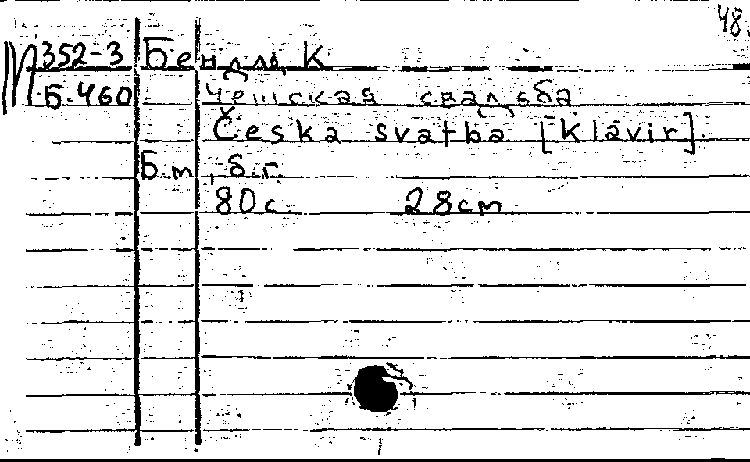 48.
М352-3 Бендль, К
Б.460 Чешская свадьба
Česka svatba [Klavir].
Б.м., б.г.
80с. 28cm